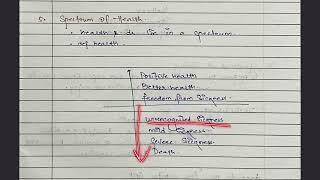 5. Spectrum of Health
• health & ds lie in a spectrum
• of health
Positive health
Better health
freedom from sickness
unrecognised sickness
mild sickness
severe sickness
Death